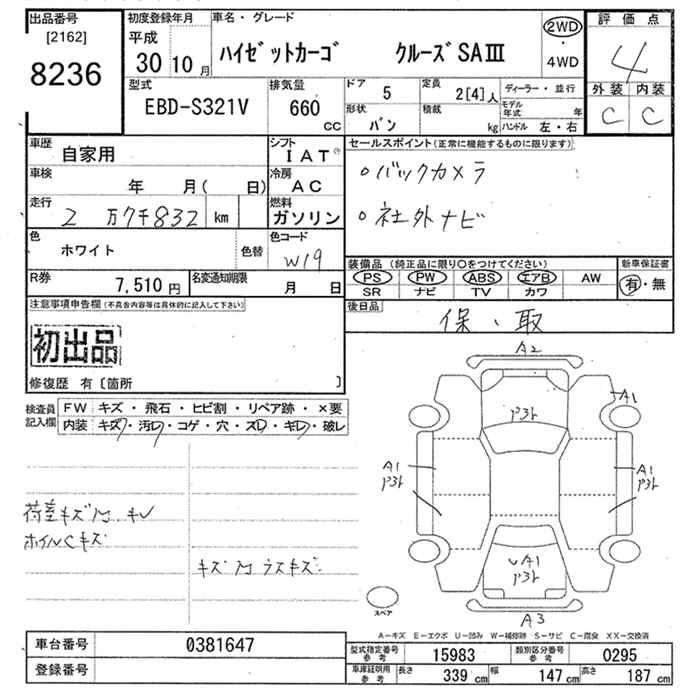 出品番号 [2162] 8236
初度登録年月 平成 30 10 月
車名・グレード ハイゼットカーゴ クルーズSAⅢ
2WD・4WD
評価点 4
外装 内装
C C
型式 EBD-S321V
排気量 660 CC
ドア 5
定員 2[4]人
ディーラー・並行
形状 バン
積載 kg
モデル年式 年
ハンドル 左・右
車歴 自家用
シフト IAT
車検 年 月( 日)
冷房 AC
走行 2 万7千832 km
燃料 ガソリン
色 ホワイト 色替
色コード W19
R券 7,510 円
名変通知期限 月 日
セールスポイント(正常に機能するものに限ります)
○バックカメラ
○社外ナビ
装備品(純正品に限り○をつけてください)
PS PW ABS エアB AW
SR ナビ TV カワ
新車保証書 有・無
後日品 保・取
注意事項申告欄(不具合内容等は具体的に記入して下さい)
初出品
修復歴 有〔箇所 〕
検査員記入欄
FW キズ・飛石・ヒビ割・リペア跡・×要
内装 キズ・汚レ・コゲ・穴・スレ・キレ・破レ
ホイルCキズ
A2
A1
A1
A1
A1
A3
スペア
A-キズ E-エクボ U-凹み W-補修跡 S-サビ C-腐食 XX-交換済
車台番号 0381647
登録番号
型式指定番号参考 15983
類別区分番号参考 0295
車庫証明用参考 長さ 339 cm 幅 147 cm 高さ 187 cm